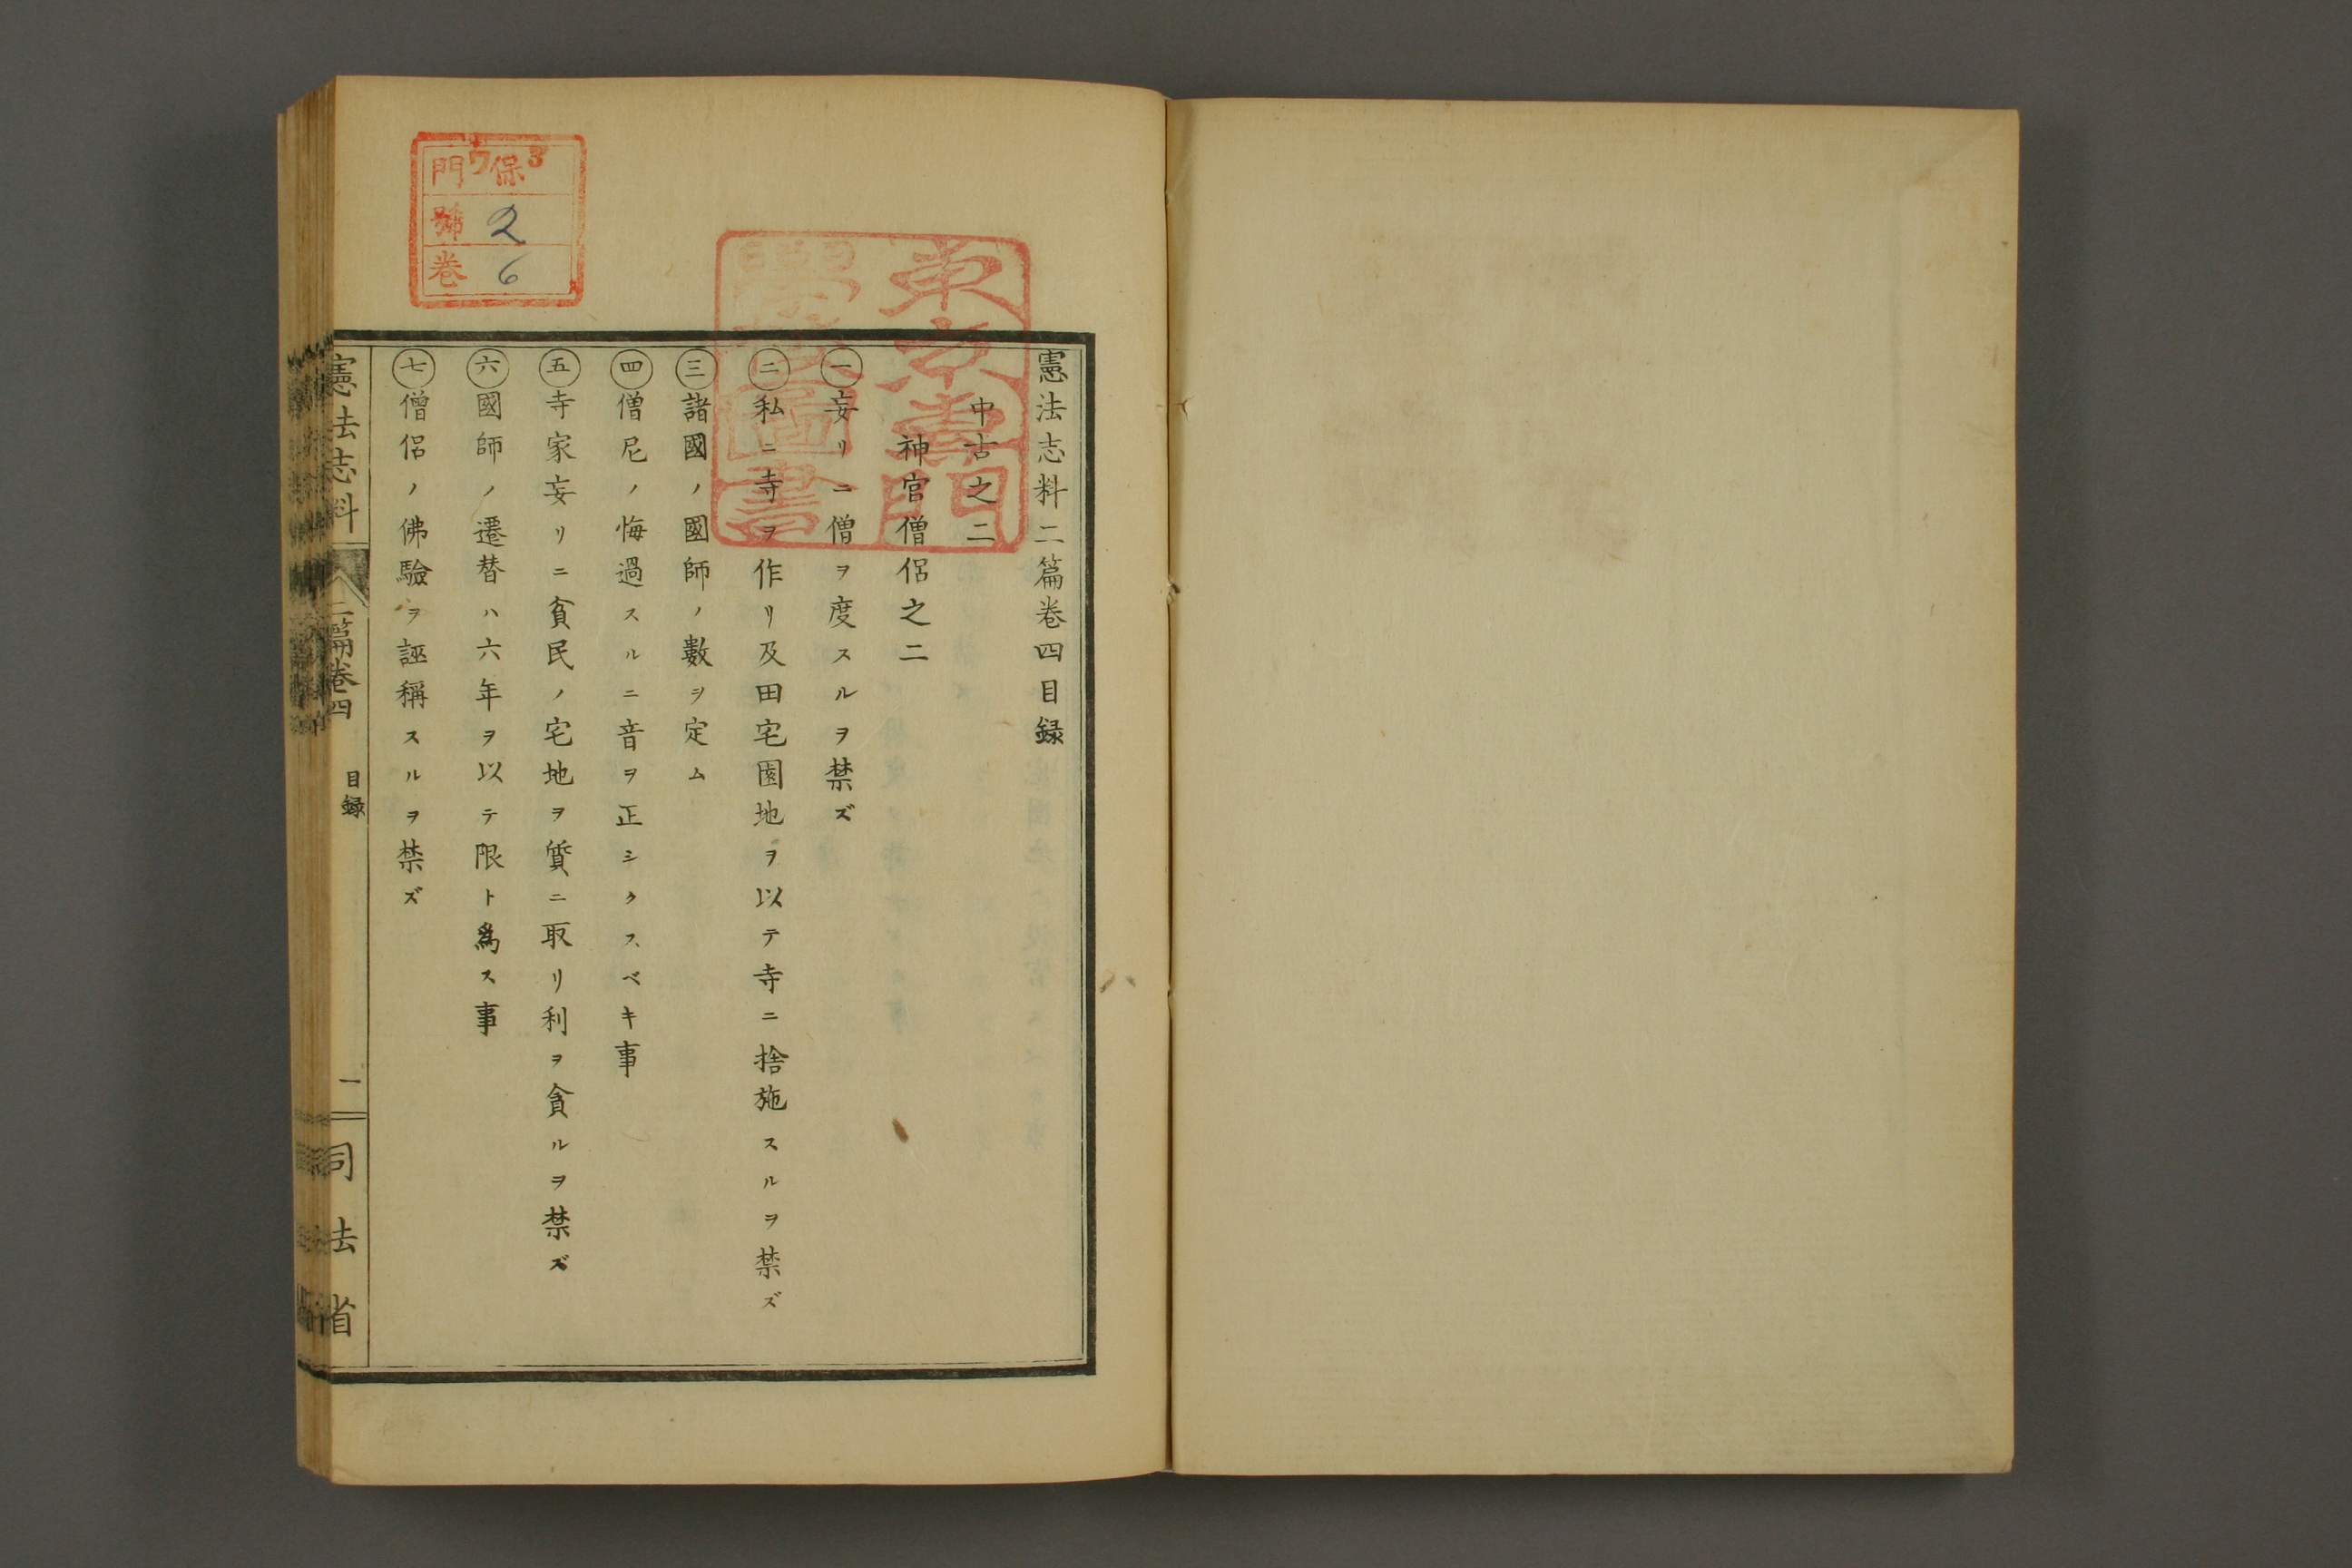 憲法志料二篇巻四目録
中古之二
神官僧侶之二
一妄リニ僧ヲ度スルヲ禁ズ
二私ニ寺ヲ作リ及田宅園地ヲ以テ寺ニ捨施スルヲ禁ズ
三諸國ノ國師ノ數ヲ定ム
四僧尼ノ悔過スルニ音ヲ正シクスベキ事
五寺家妄リニ貧民ノ宅地ヲ質ニ取リ利ヲ貪ルヲ禁ズ
六國師ノ遷替ハ六年ヲ以テ限ト為ス事
七僧侶ノ佛驗ヲ誣稱スルヲ禁ズ
憲法志料 二篇巻四 目録 一 司法省
東京專門
學校圖書
門 ワ保3
號 2
巻 6